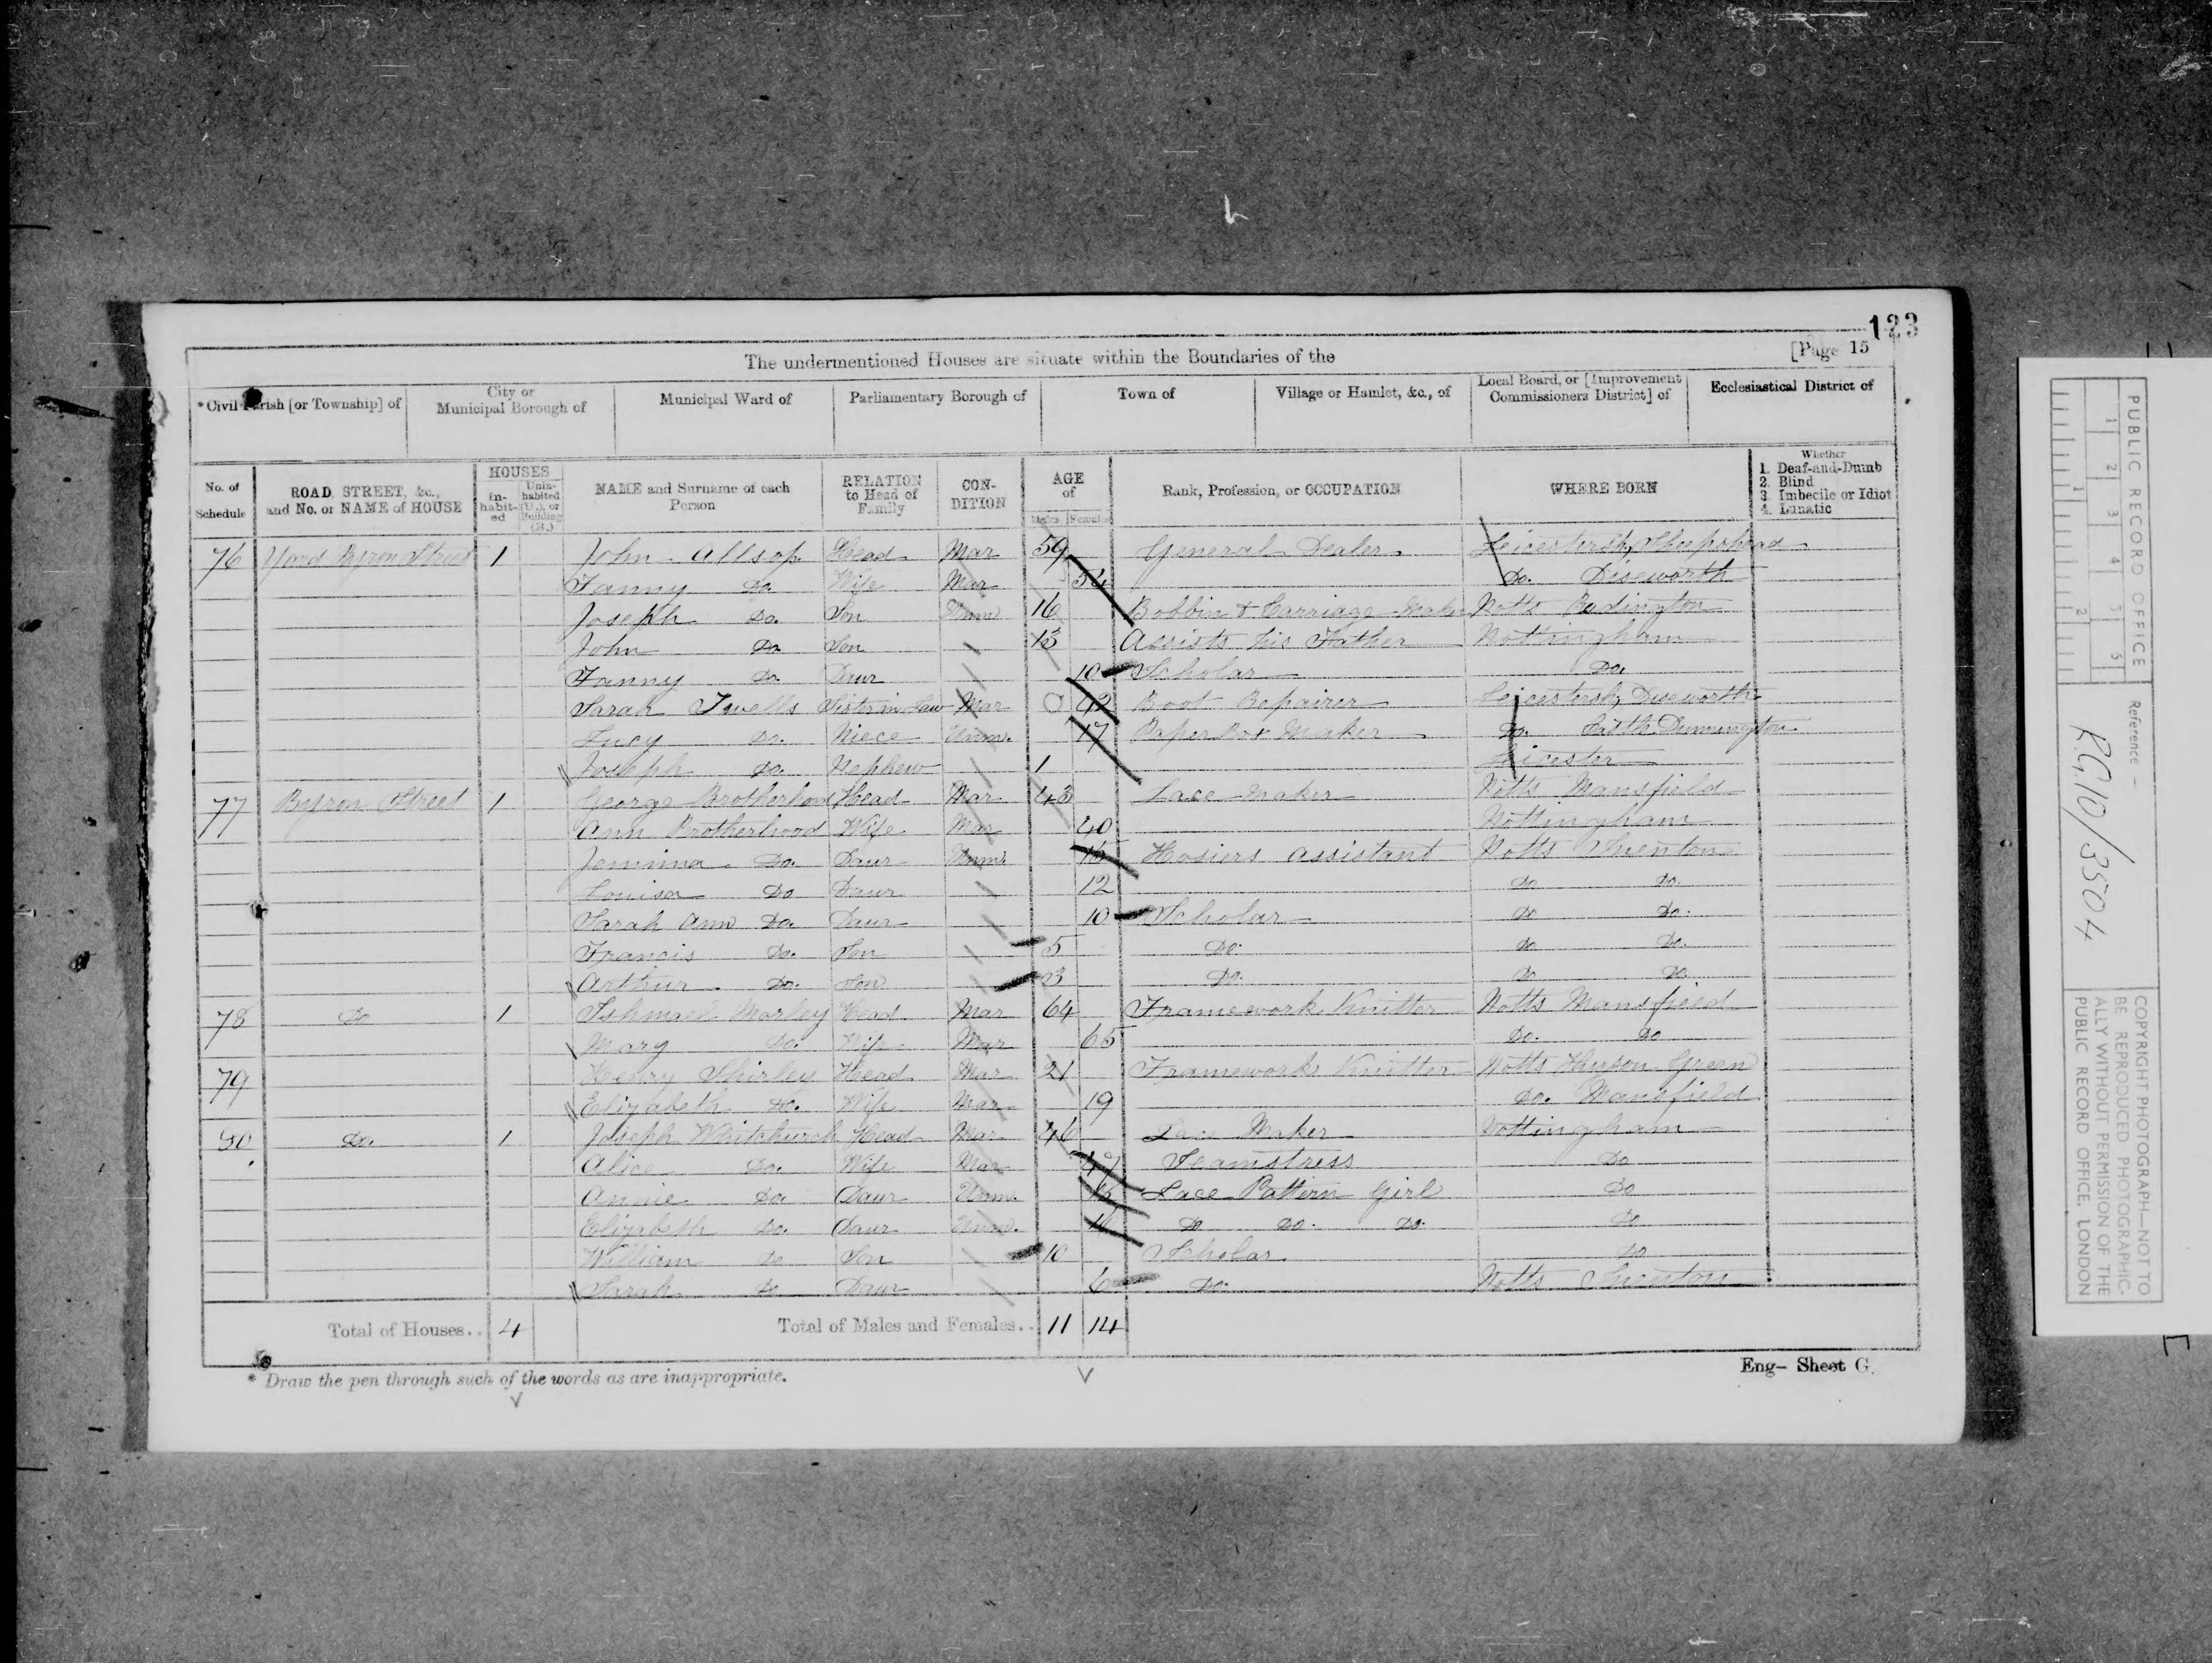 123
The undermentioned Houses are situate within the Boundaries of the [Page 15
*Civil Parish [or Township] of City or Municipal Borough of Municipal Ward of Parliamentary Borough of Town of Village or Hamlet, &c., of Local Board, or [Improvement Commissioners District] of Ecclesiastical District of
No. of Schedule ROAD, STREET, &c., and No. or NAME of HOUSE HOUSES In-habit-ed Unin-habited (U.), or Building (B.) NAME and Surname of each Person RELATION to Head of Family CON-DITION AGE of Males Females Rank, Profession, or OCCUPATION WHERE BORN Whether 1. Deaf-and-Dumb 2. Blind 3. Imbecile or Idiot 4. Lunatic
76 Yard Byron Street 1 John Allsop Head Mar 59 General Dealer Leicestersh, Sheepshead
Fanny Do. Wife Mar 54 Do. Diseworth
Joseph Do. Son Unm 16 Bobbin & Carriage Maker Notts Rudington
John Do. Son 13 Assists his Father Nottingham
Fanny Do. Daur 10 Scholar Do.
Sarah Sister in Law Mar 42 Boot Repairer Leicestersh, Diseworth
Lucy Do. Niece Unm. 17 Paper Box Maker Do.
Joseph Do. Nephew 1 Leicester
77 Byron Street 1 George Brotherhood Head Mar 43 Lace Maker Notts Mansfield
Ann Brotherhood Wife Mar 40 Nottingham
Jemima Do. Daur Unm. Hosiers assistant Notts Snenton
Louisa Do Daur 12 Do Do.
Sarah Ann Do. Daur 10 Scholar Do Do.
Francis Do. Son 5 Do. Do Do.
Arthur Do. Son 3 Do. Do Do.
78 Do 1 Ishmael Morley Head Mar 64 Framework Knitter Notts Mansfield
Mary Do. Wife Mar 65 Do. Do
79 Henry Shirley Head Mar 21 Framework Knitter Notts Hyson Green
Elizabeth Do. Wife Mar 19 Do. Mansfield
Do. 1 Joseph Whitchurch Head Mar 46 Lace Maker Nottingham
Alice Do. Wife Mar Seamstress Do
Annie Do Daur Unm. Lace Pattern Girl Do
Elizabeth Do. Daur Unm. Do Do. Do. Do
William Do Son 10 Scholar Do
Sarah Do Daur 6 Do. Notts Snenton
Total of Houses.. 4 Total of Males and Females.. 11 14
* Draw the pen through such of the words as are inappropriate. Eng- Sheet G.
PUBLIC RECORD OFFICE
1 2 3 4 5 6
1 2
Reference :-
R.G.10/3504
COPYRIGHT PHOTOGRAPH—NOT TO
BE REPRODUCED PHOTOGRAPHIC-
ALLY WITHOUT PERMISSION OF THE
PUBLIC RECORD OFFICE, LONDON